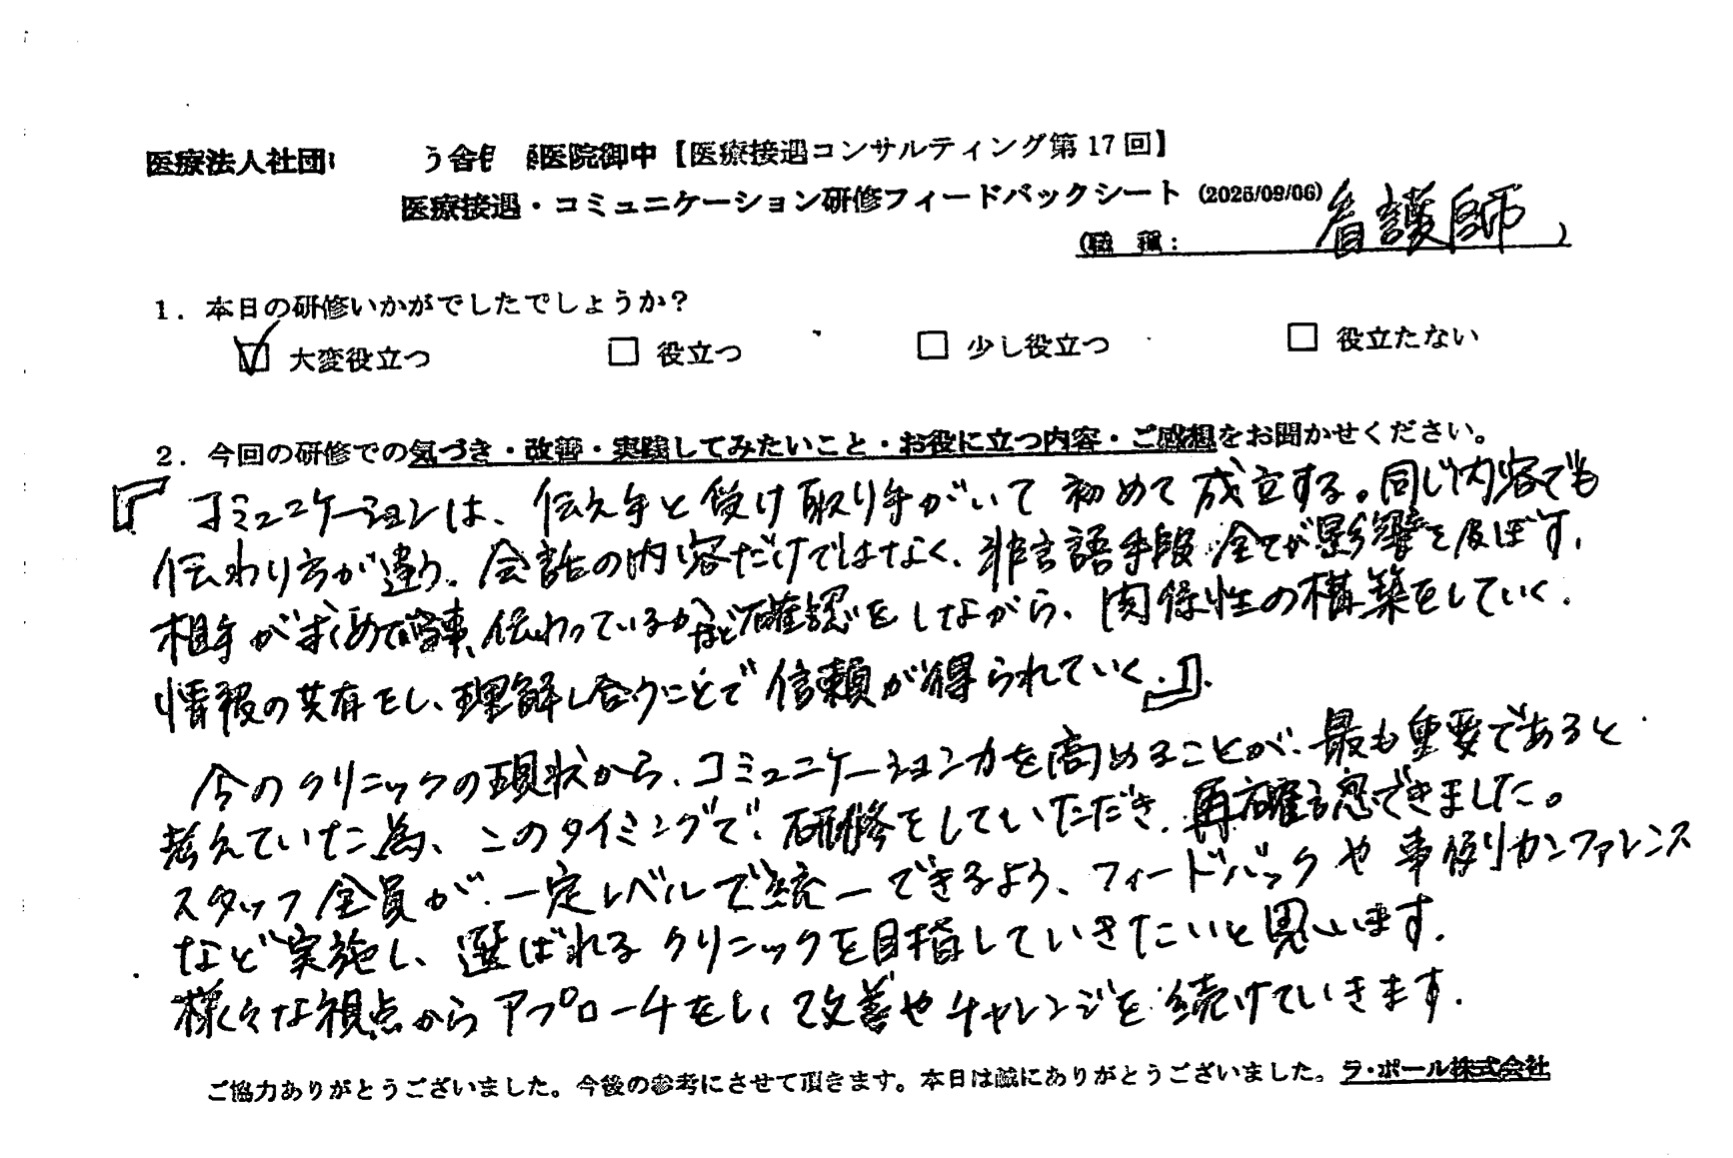 医療法人社団 う舎 医院御中【医療接遇コンサルティング第17回】
医療接遇・コミュニケーション研修フィードバックシート (2025/09/06)
(職 種: 看護師 )
1. 本日の研修いかがでしたでしょうか?
☑ 大変役立つ □ 役立つ □ 少し役立つ □ 役立たない
2. 今回の研修での気づき・改善・実践してみたいこと・お役に立つ内容・ご感想をお聞かせください。
『コミュニケーションは、伝え手と受け取り手がいて初めて成立する。同じ内容でも
伝わり方が違う。会話の内容だけではなく、非言語手段全てが影響を及ぼす。
相手が求めている事、伝わっているかなど確認をしながら、関係性の構築をしていく。
情報の共有をし、理解し合うことで信頼が得られていく。』
今のクリニックの現状から、コミュニケーション力を高めることが、最も重要であると
考えていた為、このタイミングで、研修をしていただき、再確認できました。
スタッフ全員が、一定レベルで統一できるよう、フィードバックや事例カンファレンス
など実施し、選ばれるクリニックを目指していきたいと思います。
様々な視点からアプローチをし、改善やチャレンジを続けていきます。
ご協力ありがとうございました。今後の参考にさせて頂きます。本日は誠にありがとうございました。ラ・ポール株式会社